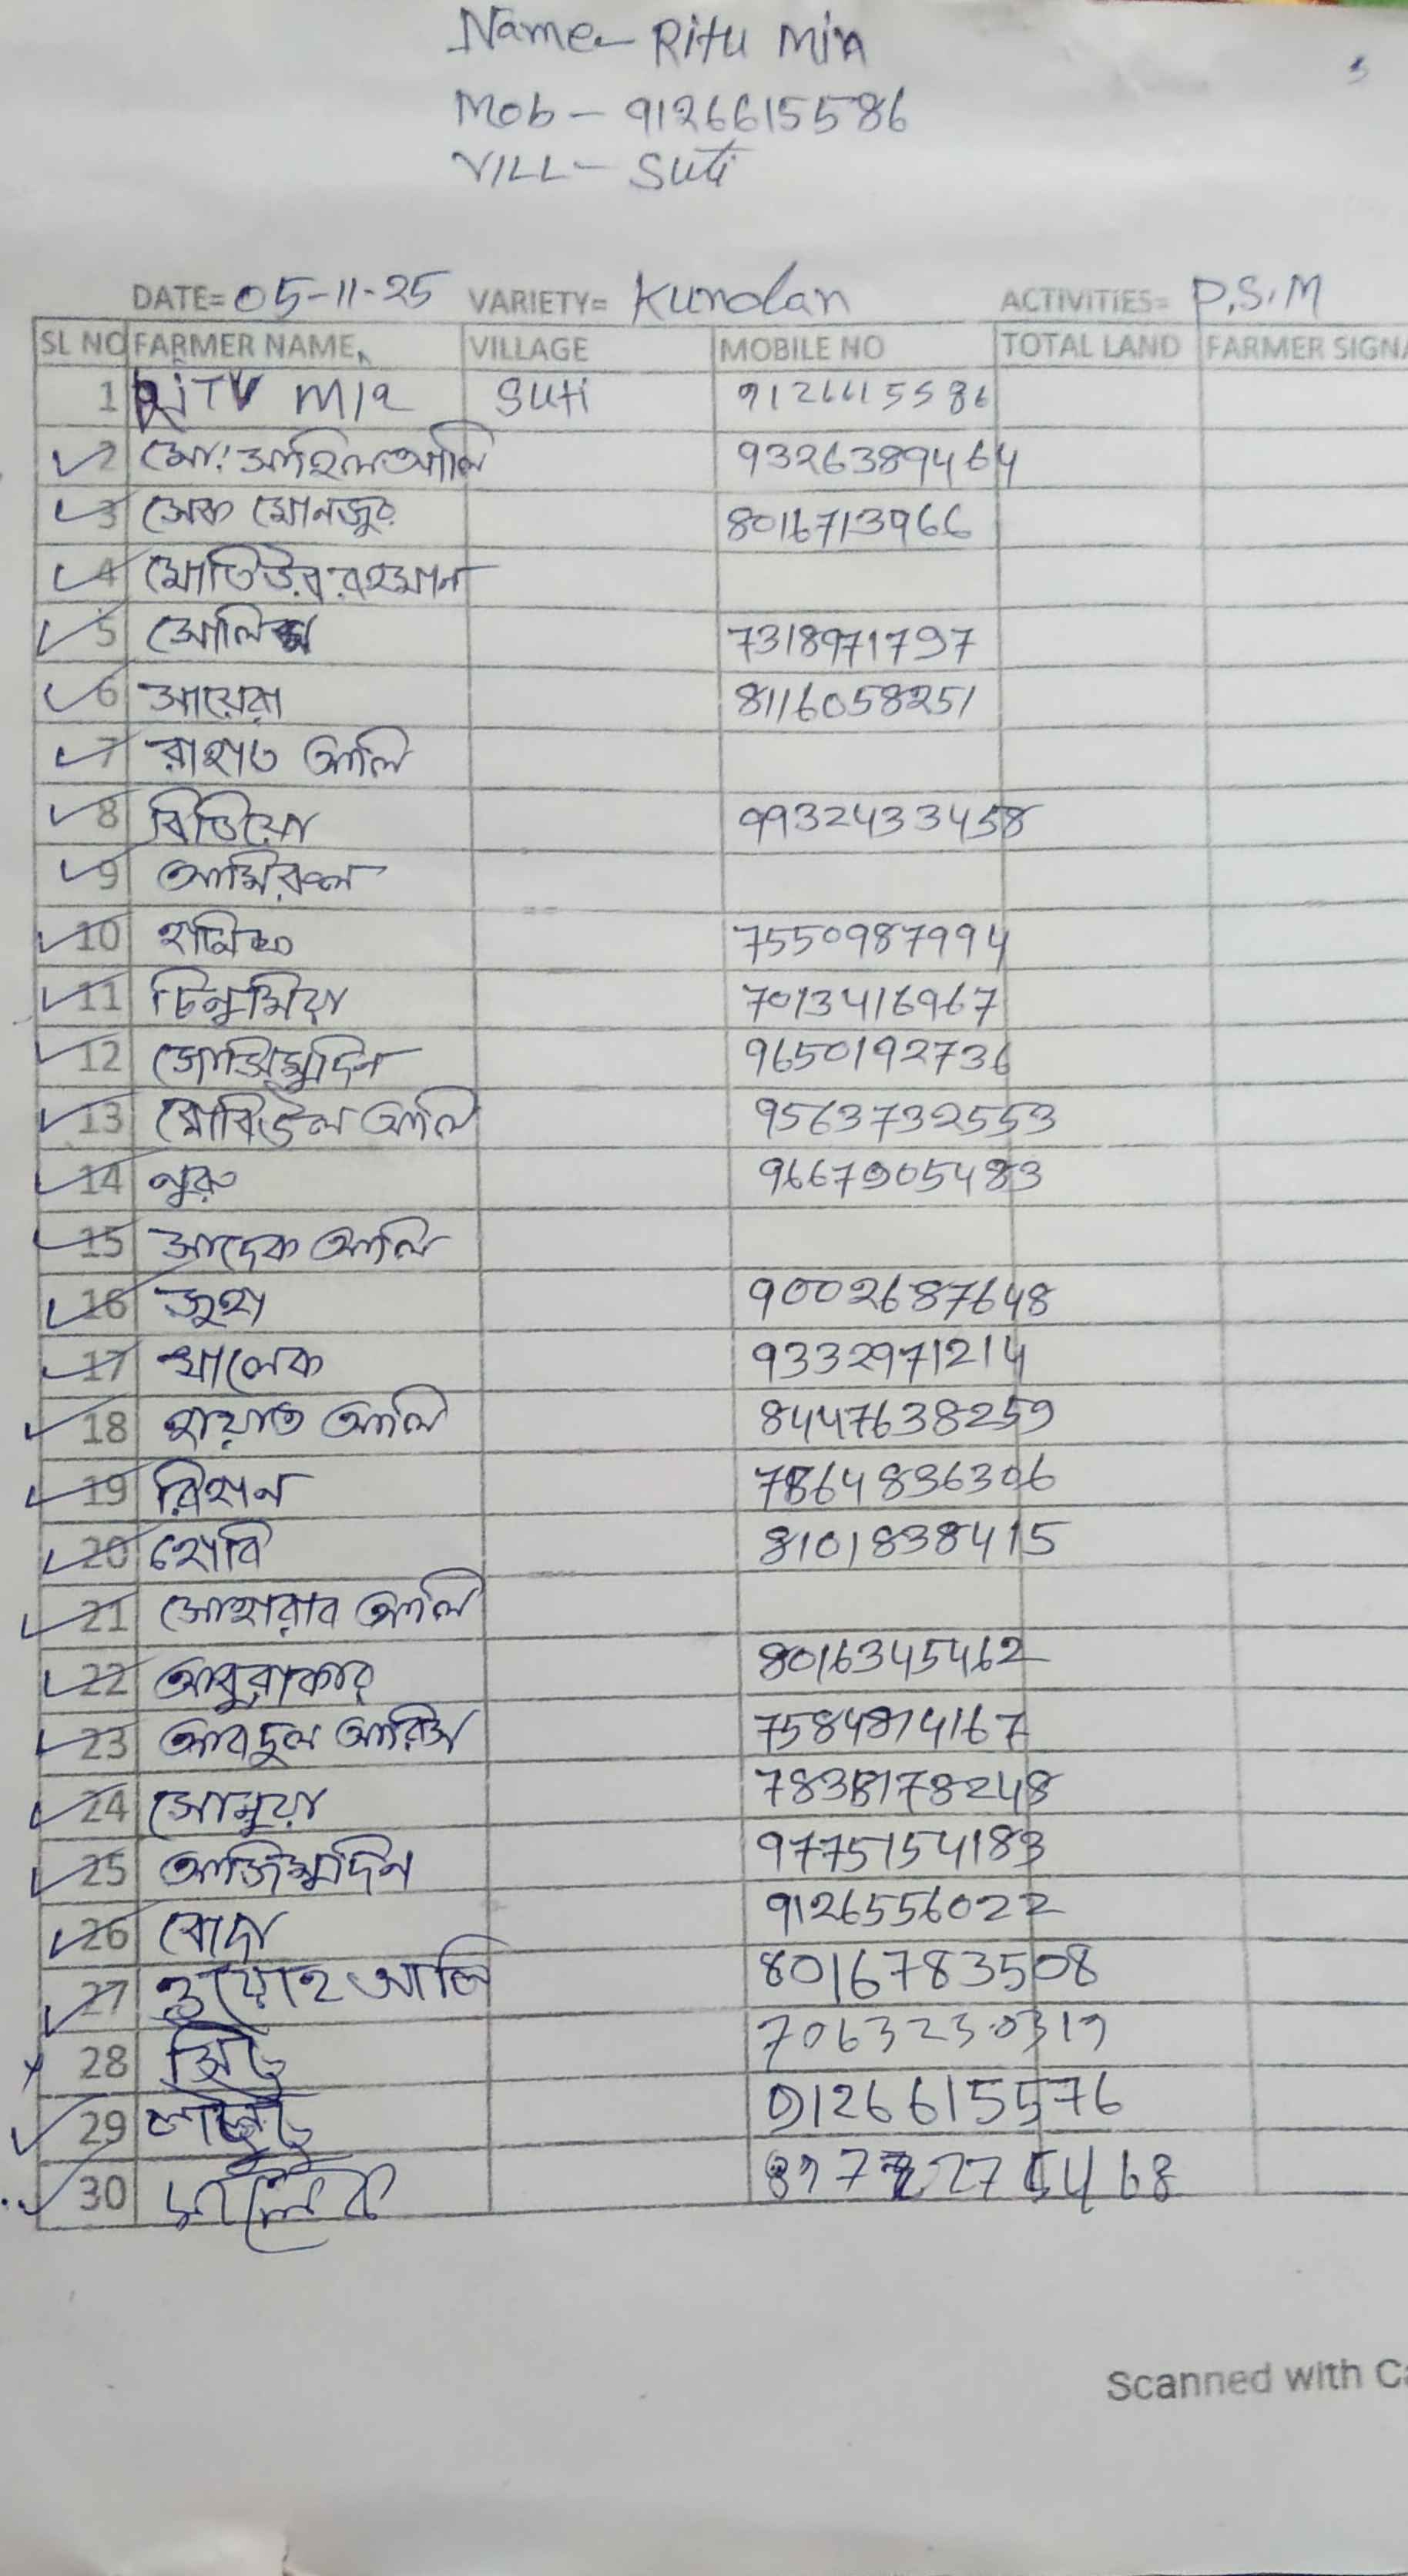 Name- Ritu Min
Mob - 9126615586
VILL- Suti
DATE= 05-11-25 VARIETY= Kundan ACTIVITIES= P.S.M
SL NO FARMER NAME VILLAGE MOBILE NO TOTAL LAND FARMER SIGNA
1 RiTU Mia Suti 9126615586
2 মো: সাহিল আলি 9326389464
3 সেক মোনজুর 8016713966
4 মোতিউর রহমান
5 7318971797
6 সায়েরা 8116058251
7 রাহাত আলি
8 9932433458
9 আমিরুল
10 হামিদ 7550987994
11 টিনু মিয়া 7013416967
12 জোসিমুদিন 9650192736
13 রোবিউল আলি 9563732553
14 নুরু 9667905483
15 সাদেক আলি
16 জুহা 9002687648
17 খালেক 9332971214
18 হায়াত আলি 8447638259
19 রিহান 7864836306
20 হোবি 8101838415
21 সোহারাব আলি
22 আবুরাকার 8016345462
23 আবদুল আরিস 7584874167
24 সোনুয়া 7838178248
25 আজিমুদিন 9775154183
26 বোদা 9126556022
27 আলি 8016783508
28 7063230319
29 9126615576
30 মালেক
Scanned with Ca